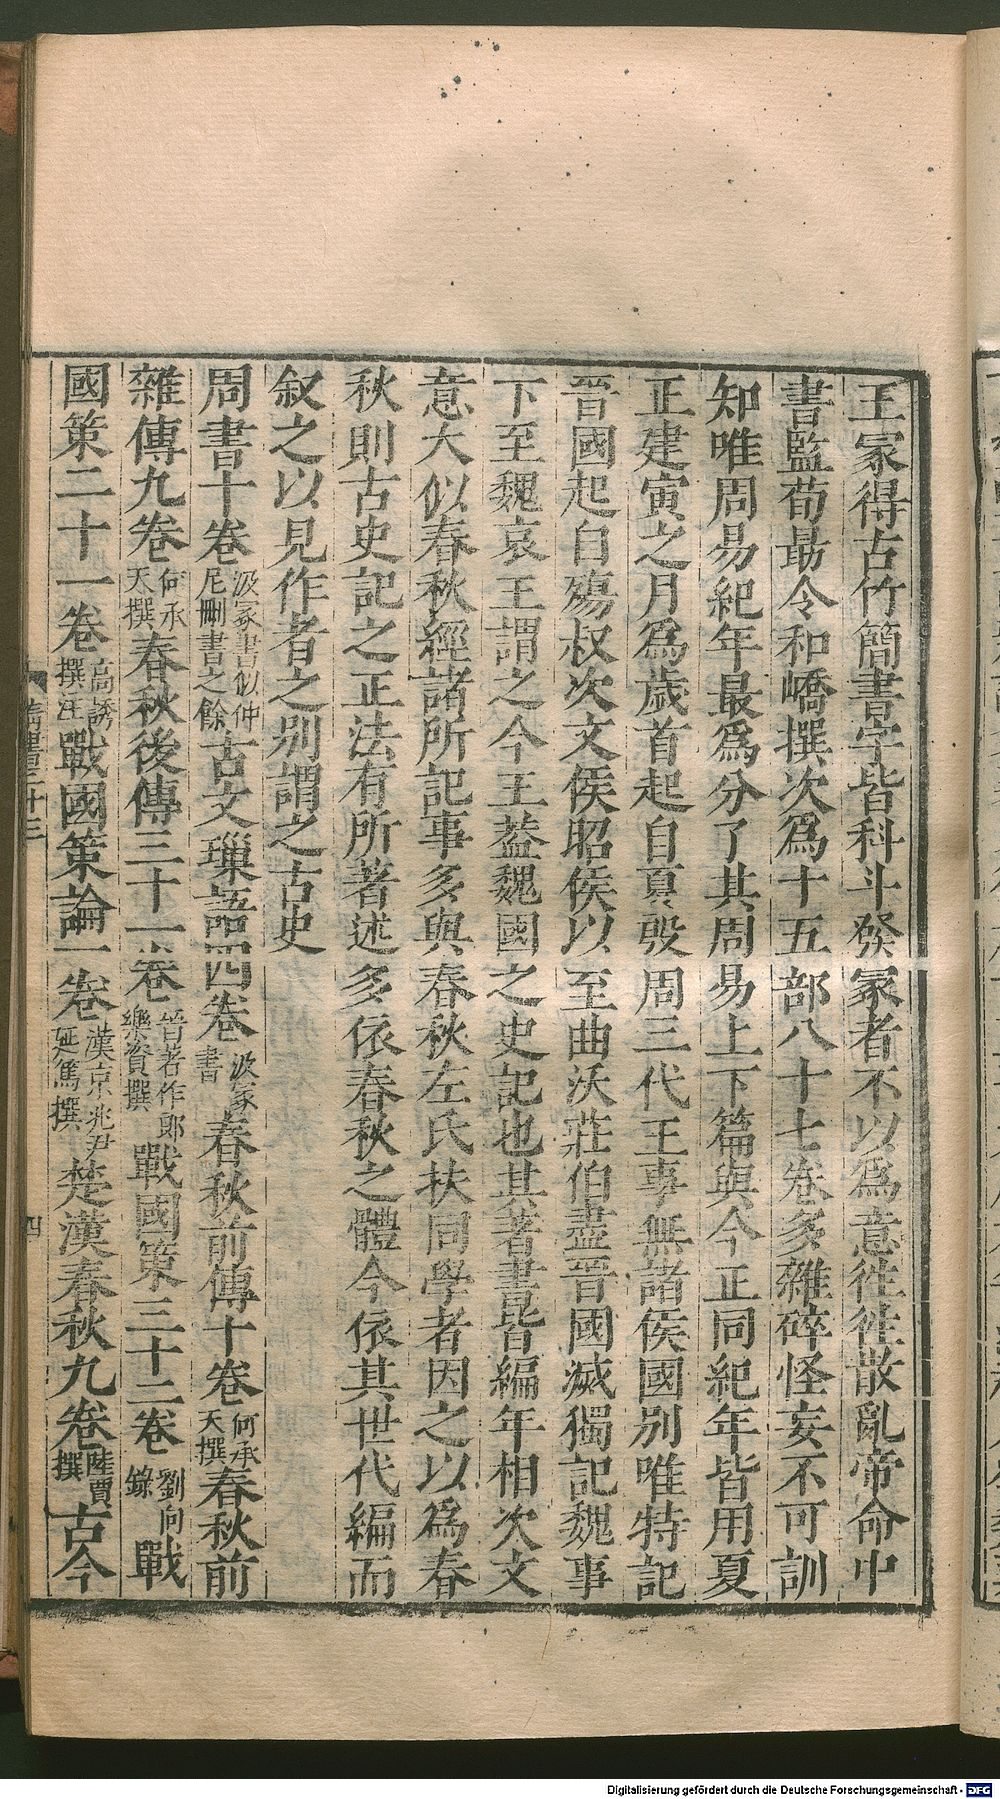 王冢得古竹簡書字皆科斗發冢者不以爲意往往散亂帝命中
書監荀勗令和嶠撰次爲十五部八十七卷多雜碎怪妄不可訓
知唯周易紀年最爲分了其周易上下篇與今正同紀年皆用夏
正建寅之月爲歲首起自夏殷周三代王事無諸侯國別唯特記
晉國起自殤叔次文侯昭侯以至曲沃莊伯盡晉國滅獨記魏事
下至魏哀王謂之今王葢魏國之史記也其著書皆編年相次文
意大似春秋經諸所記事多與春秋左氏扶同學者因之以爲春
秋則古史記之正法有所著述多依春秋之體今依其世代編而
叙之以見作者之別謂之古史
周書十卷汲冢書似仲尼刪書之餘古文璅語四卷汲冢書春秋前傳十卷何承天撰春秋前
雜傳九卷何承天撰春秋後傳三十一卷晉著作郎樂資撰戰國策三十二卷劉向錄戰
國策二十一卷高誘撰注戰國策論一卷漢京兆尹延篤撰楚漢春秋九卷陸賈撰古今
隋書三十三
四
Digitalisierung gefördert durch die Deutsche Forschungsgemeinschaft - DFG